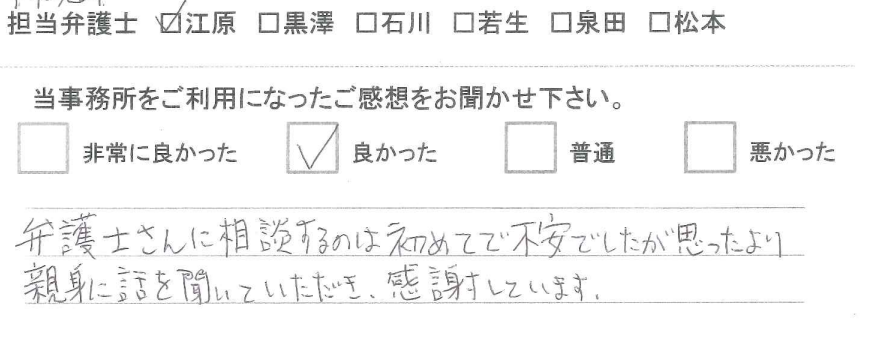 担当弁護士 ☑江原 □黒澤 □石川 □若生 □泉田 □松本
当事務所をご利用になったご感想をお聞かせ下さい。
□ 非常に良かった ☑ 良かった □ 普通 □ 悪かった
弁護士さんに相談するのは初めてで不安でしたが思ったより
親身に話を聞いていただき、感謝しています。